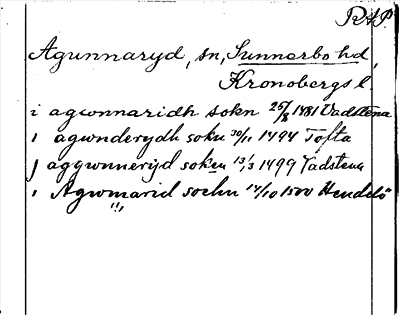 RAP.
Agunnaryd, sn, Sunnerbo hd,
Kronobergs l.
i agwnnaridh sokn 25/8 1481 Vadstena
i agwnderydh sokn 30/11 1494 Tofta
j aggwnneryd soken 13/3 1499 Vadstena
i Agwmarid sochn 14/10 1500 Hendelö